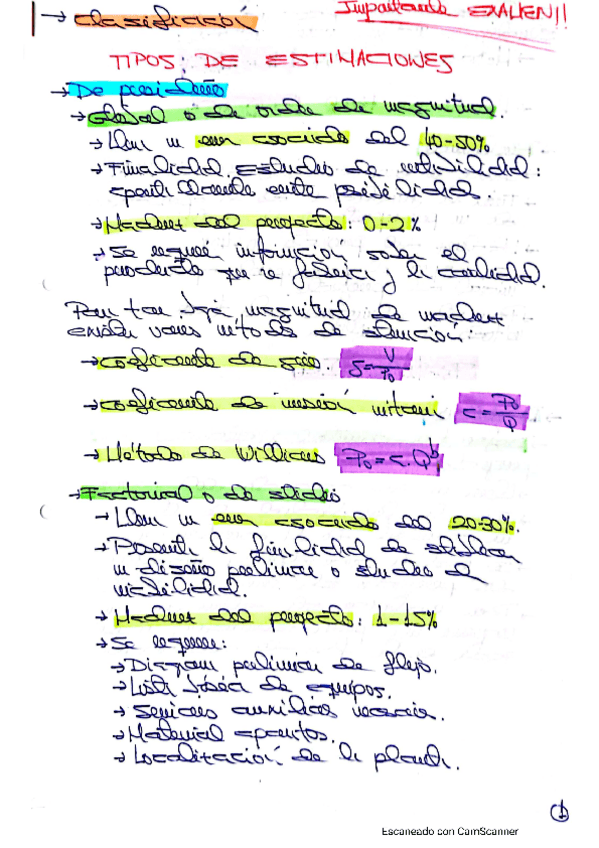 → Clasificación
Importante EXAMEN!!
TIPOS DE ESTIMACIONES
→ De
→ Global o de orden de magnitud.
→ Lleva un error asociado del 40-50%
→ Finalidad estudio de :
→ Madurez del proyecto: 0-2%
→ Se requiere información sobre el
producto que se fabrica y la cantidad.
Para tan baja magnitud de madurez
existen varios métodos de :
→ Coeficiente de giro. S=V/P₀
→ Coeficiente de c=P₀/Q
→ Método de Williams P₀=c.Qᵇ
→ Factorial o de estudio
→ Lleva un error asociado del 20-30%.
→ la finalidad de
un diseño preliminar o estudio de
→ Madurez del proyecto: 1-15%
→ Se requiere:
→ Diagrama preliminar de flujo.
→ Lista básica de equipos.
→ Servicios auxiliares necesarios.
→ Material
→ Localización de la planta.
1
Escaneado con CamScanner